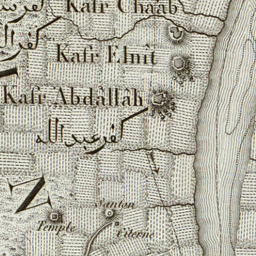 Kafr Chaab
Kafr Elnît
Kafr Abdâllâh
كفر عبد الله
N
Santon
Temple
Citerne